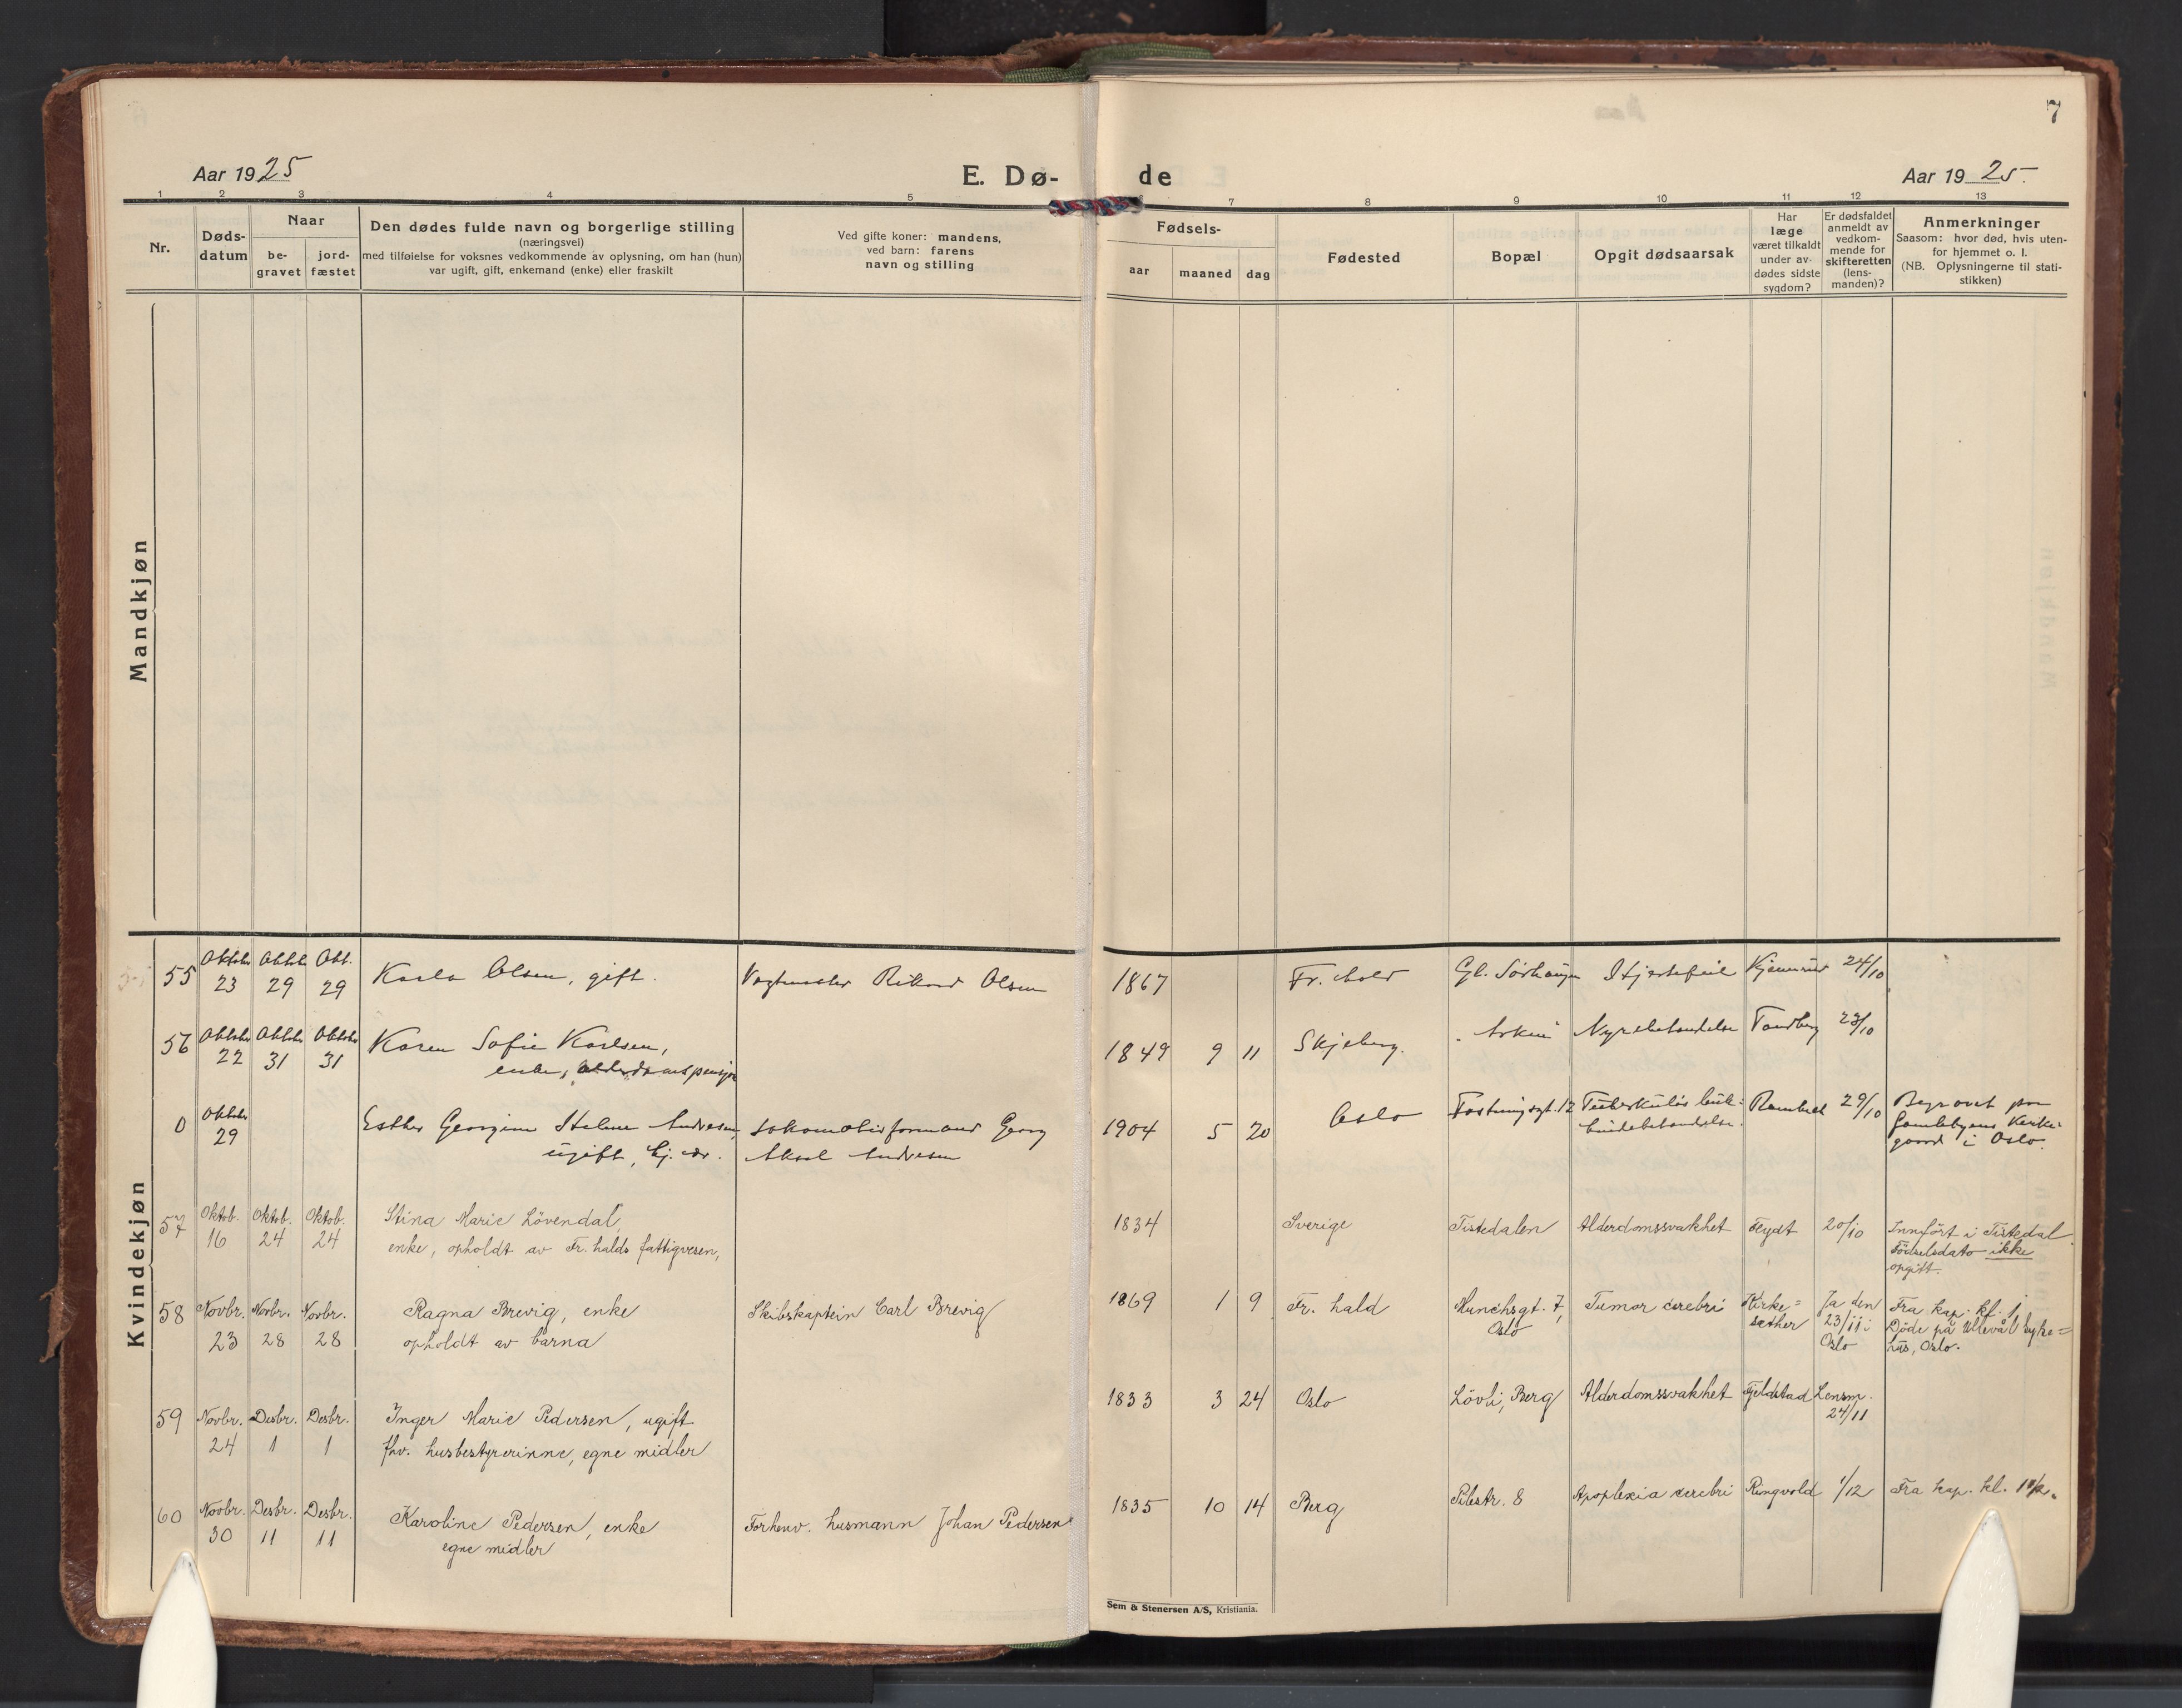 7
Aar 1925
E. Dø-
de
Aar 1925.
1 2 3 4 5 7 8 9 10 11 12 13
Nr.
Døds-
datum
Naar
be-
gravet
jord-
fæstet
Den dødes fulde navn og borgerlige stilling
(næringsvei)
med tilføielse for voksnes vedkommende av oplysning, om han (hun)
var ugift, gift, enkemand (enke) eller fraskilt
Ved gifte koner: mandens,
ved barn: farens
navn og stilling
Fødsels-
aar
maaned
dag
Fødested
Bopæl
Opgit dødsaarsak
Har
læge
været tilkaldt
under av-
dødes sidste
sygdom?
Er dødsfaldet
anmeldt av
vedkom-
mende for
skifteretten
(lens-
manden)?
Anmerkninger
Saasom: hvor død, hvis uten-
for hjemmet o. l.
(NB. Oplysningerne til stati-
stikken)
Mandkjøn
Kvindekjøn
55 23 29 Okt. 29 Karla Olsen, gift. Olsen 1867 Fr. hald Gl. Hjertefeil 24/10
56 22 31 31 Karen Sofie Karlsen, 1849 9 11 Skjeberg. Tandberg 23/10
enke, alderdomspensjon
0 29 Esther Georgine Helene Andresen, Lokomotivformand Georg 1904 5 20 Oslo 12 29/10
ugift, Aksel Andresen
Begravet paa
Gamlebyens Kirke-
gaard i Oslo.
57 Oktob. 16 Oktob. 24 Oktob. 24 Stina Marie Lövendal, 1834 Sverige Tistedalen Alderdomssvakhet Flydt 20/10
enke, opholdt av Fr.halds fattigvesen,
Innført i Tistedal.
Fødselsdato ikke
opgitt.
58 Novbr. 23 Novbr. 28 Novbr. 28 Ragna Brevig, enke Skibskaptein Carl Brevig 1869 1 9 Fr. hald Munchsgt. 7, Oslo Tumor cerebri Kirke=
sether
opholdt av barna
Ja den
23/11 i
Oslo
Fra kap. kl. 1
Döde på Ullevål syke=
hus, Oslo.
59 Novbr. 24 Desbr. 1 Desbr. 1 Inger Marie Pedersen, ugift 1833 3 24 Oslo Lövli, Berg Alderdomssvakhet Fjeldstad Lensm.
24/11
fhv. husbestyrerinne, egne midler
60 Novbr. 30 Desbr. 11 Desbr. 11 Karoline Pedersen, enke Forhenv. husmann Johan Pedersen 1835 10 14 Berg Pilestr. 8 Apoplexia cerebri Ringvold 1/12 Fra kap. kl.
egne midler
Sem & Stenersen A/S, Kristiania.